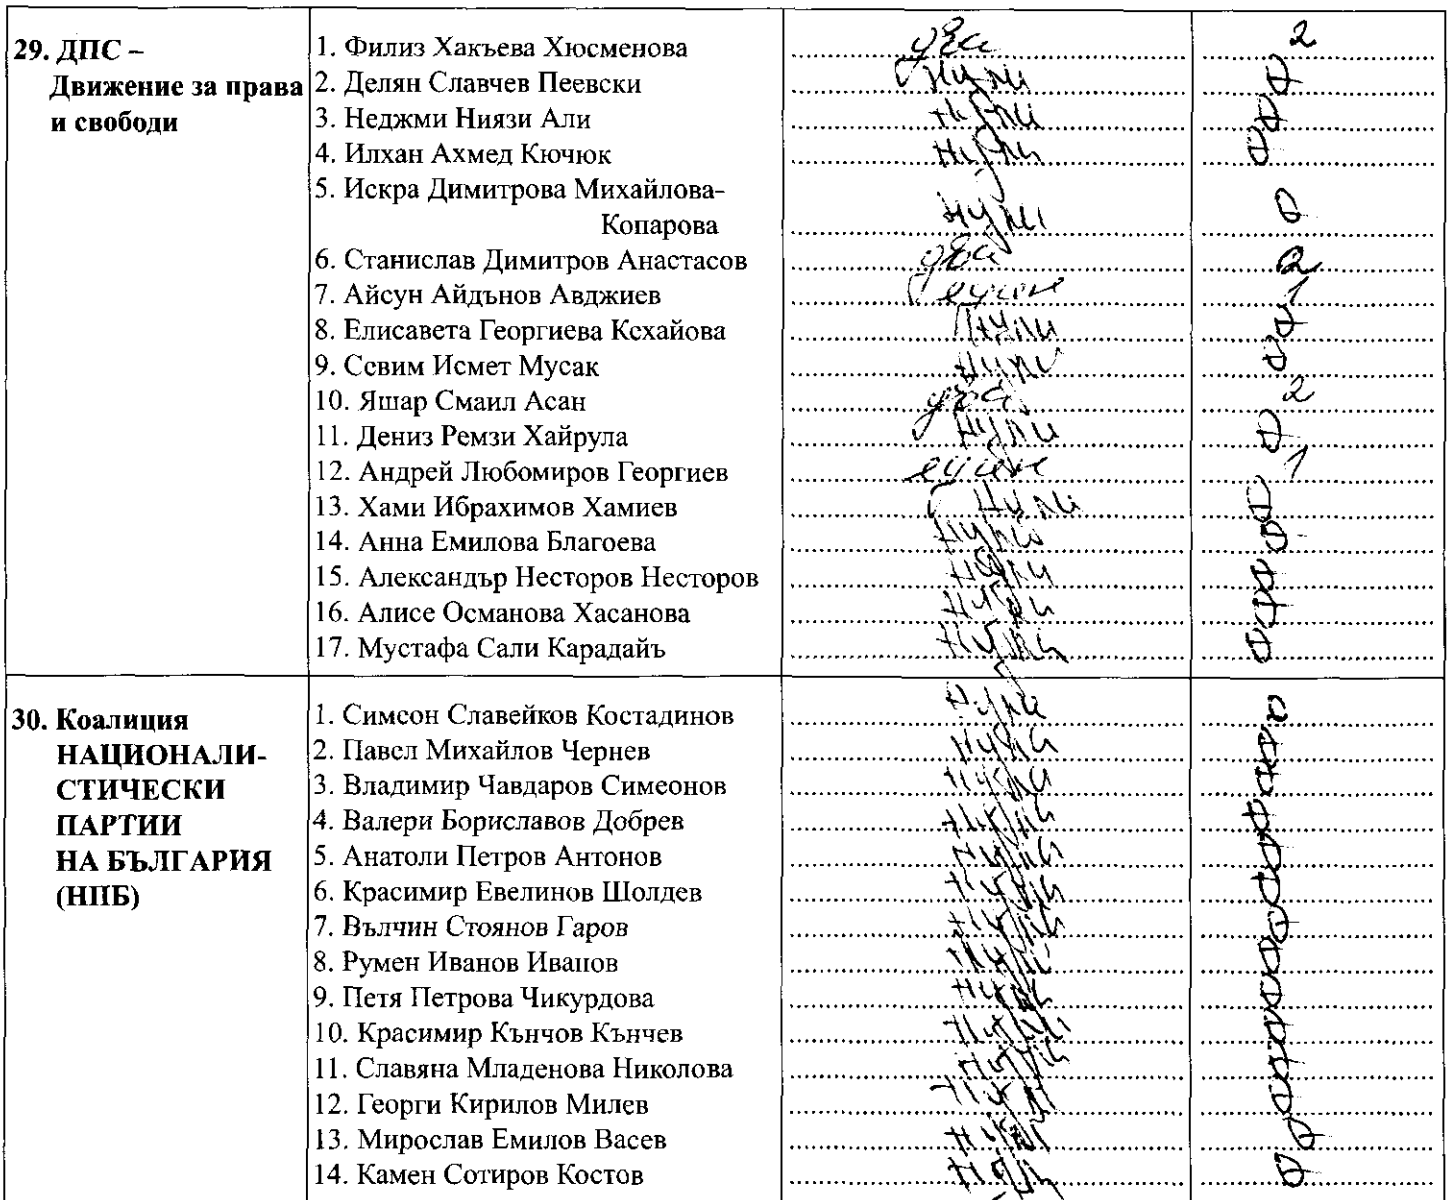 29. ДПС –
Движение за права
и свободи
1. Филиз Хакъева Хюсменова два 2
2. Делян Славчев Пеевски нули 0
3. Неджми Ниязи Али нули 0
4. Илхан Ахмед Кючюк нули 0
5. Искра Димитрова Михайлова-
Копарова нули 0
6. Станислав Димитров Анастасов два 2
7. Айсун Айдънов Авджиев един 1
8. Елисавета Георгиева Кехайова нули 0
9. Севим Исмет Мусак нули 0
10. Яшар Смаил Асан два 2
11. Дениз Ремзи Хайрула нули 0
12. Андрей Любомиров Георгиев един 1
13. Хами Ибрахимов Хамиев нули 0
14. Анна Емилова Благоева нули 0
15. Александър Несторов Несторов нули 0
16. Алисе Османова Хасанова нули 0
17. Мустафа Сали Карадайъ нули 0
30. Коалиция
НАЦИОНАЛИ-
СТИЧЕСКИ
ПАРТИИ
НА БЪЛГАРИЯ
(НПБ)
1. Симсон Славейков Костадинов нули 0
2. Павел Михайлов Чернев нули 0
3. Владимир Чавдаров Симеонов нули 0
4. Валери Бориславов Добрев нули 0
5. Анатоли Петров Антонов нули 0
6. Красимир Евелинов Шолдев нули 0
7. Вълчин Стоянов Гаров нули 0
8. Румен Иванов Иванов нули 0
9. Петя Петрова Чикурдова нули 0
10. Красимир Кънчов Кънчев нули 0
11. Славяна Младенова Николова нули 0
12. Георги Кирилов Милев нули 0
13. Мирослав Емилов Васев нули 0
14. Камен Сотиров Костов нули 0